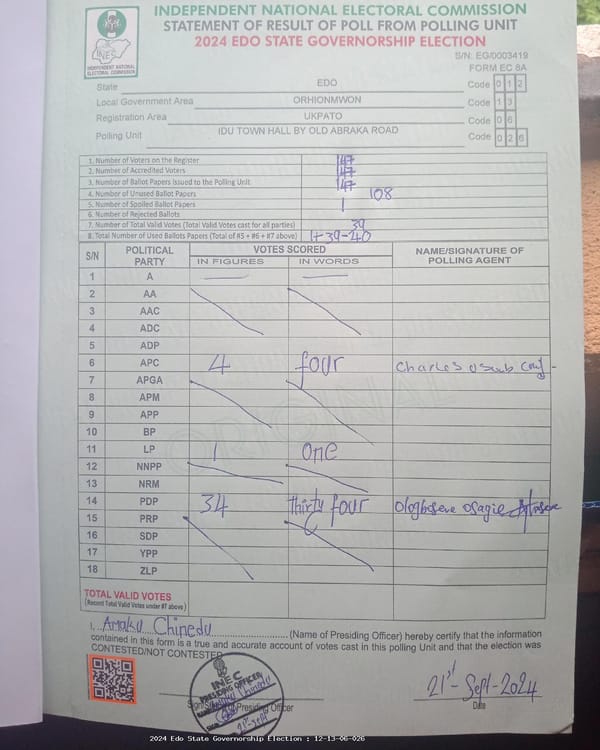 INDEPENDENT NATIONAL ELECTORAL COMMISSION
STATEMENT OF RESULT OF POLL FROM POLLING UNIT
2024 EDO STATE GOVERNORSHIP ELECTION
INEC
INDEPENDENT NATIONAL ELECTORAL COMMISSION
S/N: EG/0003419
FORM EC 8A
State EDO Code 0 1 2
Local Government Area ORHIONMWON Code 1 3
Registration Area UKPATO Code 0 6
Polling Unit IDU TOWN HALL BY OLD ABRAKA ROAD Code 0 2 6
1. Number of Voters on the Register 147
2. Number of Accredited Voters 147
3. Number of Ballot Papers Issued to the Polling Unit 147
4. Number of Unused Ballot Papers 108
5. Number of Spoiled Ballot Papers 1
6. Number of Rejected Ballots
7. Number of Total Valid Votes (Total Valid Votes cast for all parties) 39
8. Total Number of Used Ballots Papers (Total of #5 + #6 + #7 above) 1+39-40
S/N POLITICAL PARTY VOTES SCORED NAME/SIGNATURE OF POLLING AGENT
IN FIGURES IN WORDS
1 A
2 AA
3 AAC
4 ADC
5 ADP
6 APC 4 four Charles
7 APGA
8 APM
9 APP
10 BP
11 LP 1 one
12 NNPP
13 NRM
14 PDP 34 thirty four Ologbosere Osagie
15 PRP
16 SDP
17 YPP
18 ZLP
TOTAL VALID VOTES
(Record Total Valid Votes under #7 above)
I, Amaku Chinedu (Name of Presiding Officer) hereby certify that the information
contained in this form is a true and accurate account of votes cast in this polling Unit and that the election was
CONTESTED/NOT CONTESTED
INEC
PRESIDING OFFICER
Presiding Officer
21st-Sept-2024
Date
2024 Edo State Governorship Election : 12-13-06-026